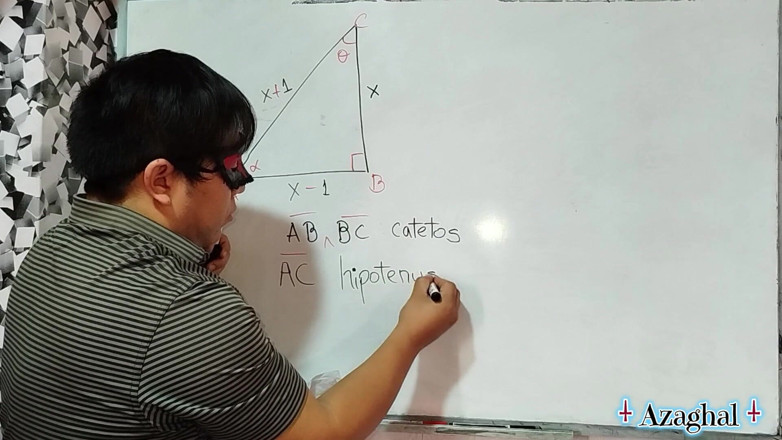 C
θ
x+1
x
α
x-1
B
AB ∧ BC catetos
AC hipotenus
Azaghal